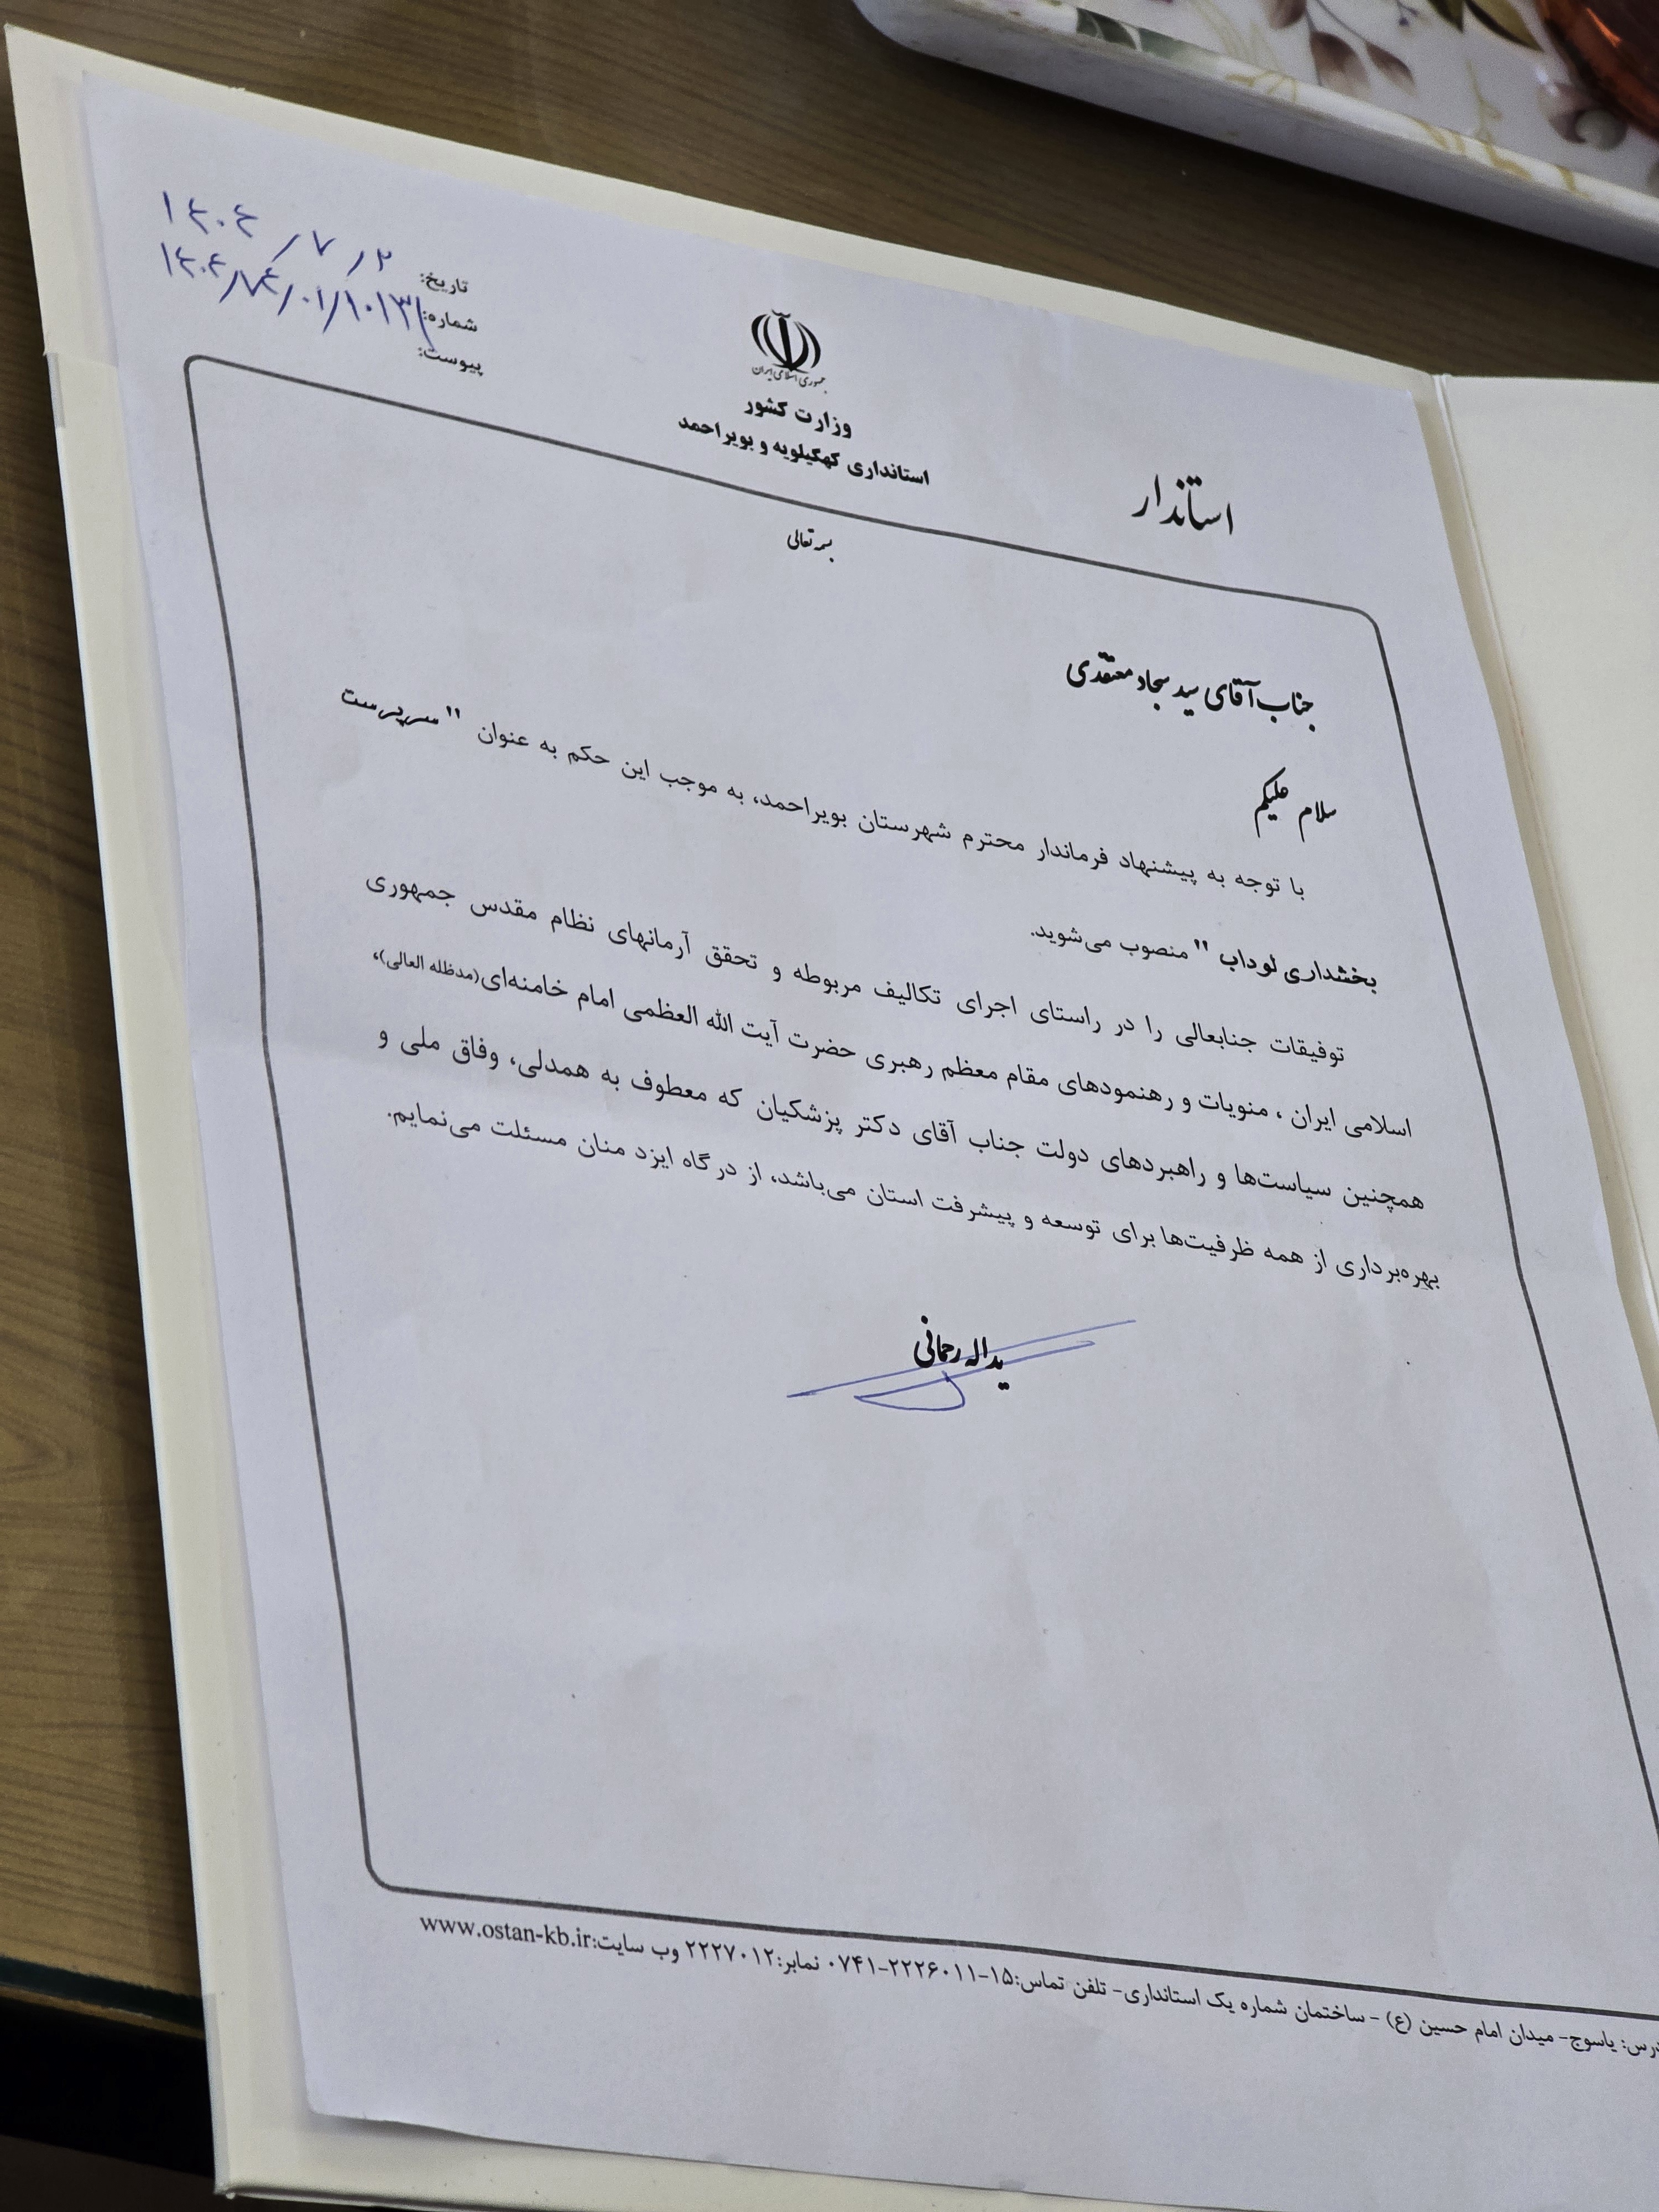 تاریخ: ۱۴۰۴/۷/۲
شماره:
پیوست:
جمهوری اسلامی ایران
وزارت کشور
استانداری کهگیلویه و بویراحمد
استاندار
بسمه تعالی
جناب آقای سید سجاد معتقدی
سلام علیکم
با توجه به پیشنهاد فرماندار محترم شهرستان بویراحمد، به موجب این حکم به عنوان "سرپرست
بخشداری لوداب" منصوب می‌شوید.
توفیقات جنابعالی را در راستای اجرای تکالیف مربوطه و تحقق آرمانهای نظام مقدس جمهوری
اسلامی ایران ، منویات و رهنمودهای مقام معظم رهبری حضرت آیت الله العظمی امام خامنه‌ای(مدظله العالی)،
همچنین سیاست‌ها و راهبردهای دولت جناب آقای دکتر پزشکیان که معطوف به همدلی، وفاق ملی و
بهره‌برداری از همه ظرفیت‌ها برای توسعه و پیشرفت استان می‌باشد، از درگاه ایزد منان مسئلت می‌نمایم.
یداله رحمانی
درس: یاسوج- میدان امام حسین (ع) - ساختمان شماره یک استانداری- تلفن تماس:۱۵-۲۲۲۶۰۱۱-۰۷۴۱ نمابر:۲۲۲۷۰۱۲ وب سایت:www.ostan-kb.ir